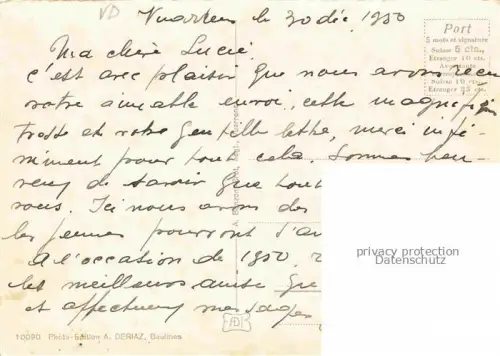 VD
Vuarrens le 30 déc. 1950
Ma chère Lucie
c'est avec plaisir que nous avons reçu
votre aimable envoi, cette magnifique
et votre gentille lettre, merci infi-
niment pour tout cela. Sommes heu-
reux de savoir que tout
vous. Ici nous avons des
les jeunes pourront d'au
A l'occasion de 1950,
les meilleurs
et affectueux messages
Port
5 mots et signature
Suisse 5 cts.
Etranger 10 cts.
Suisse 10 cts.
privacy protection
Datenschutz
10090 Photo-Edition A. DERIAZ, Baulmes